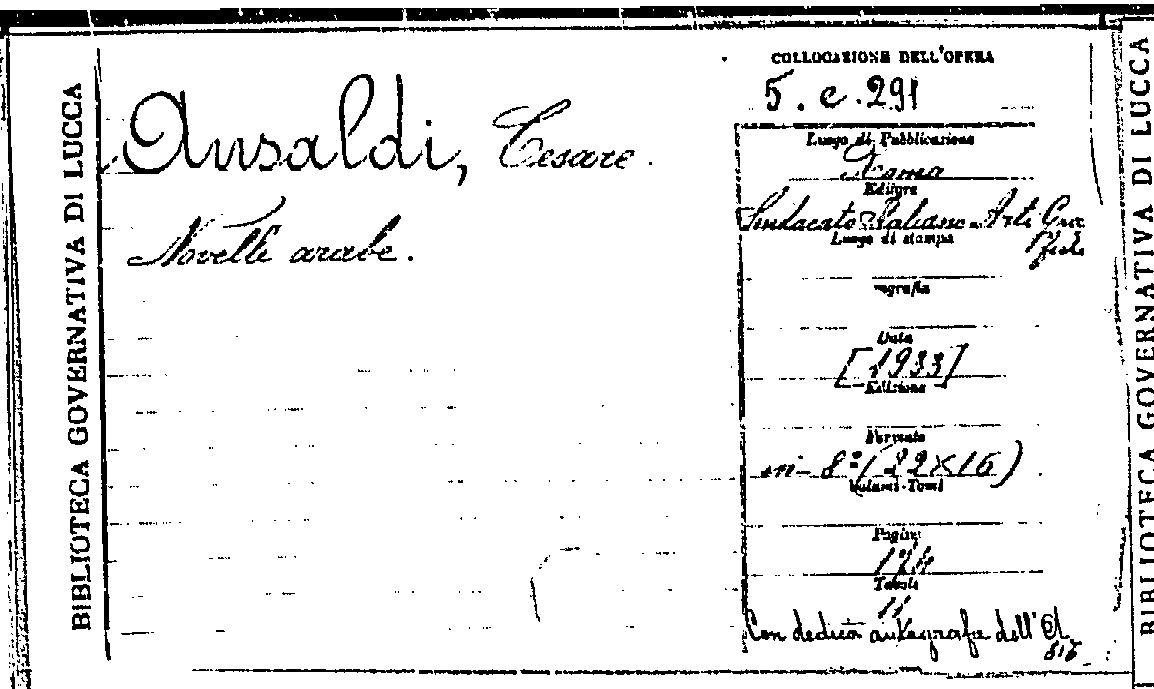 BIBLIOTECA GOVERNATIVA DI LUCCA
Ansaldi, Cesare.
Novelle arabe.
COLLOCAZIONE DELL'OPERA
5. c. 291
Luogo di Pubblicazione
Roma
Editore
Sindacato Italiano Arti Gra
fiche
Luogo di stampa
Data
[1933]
Edizione
Formato
in-8º (22×16)
Volumi-Tomi
Pagine
174
Tavole
11
Con dedica autografa dell'A.
BIBLIOTECA GOVERNATIVA DI LUCCA